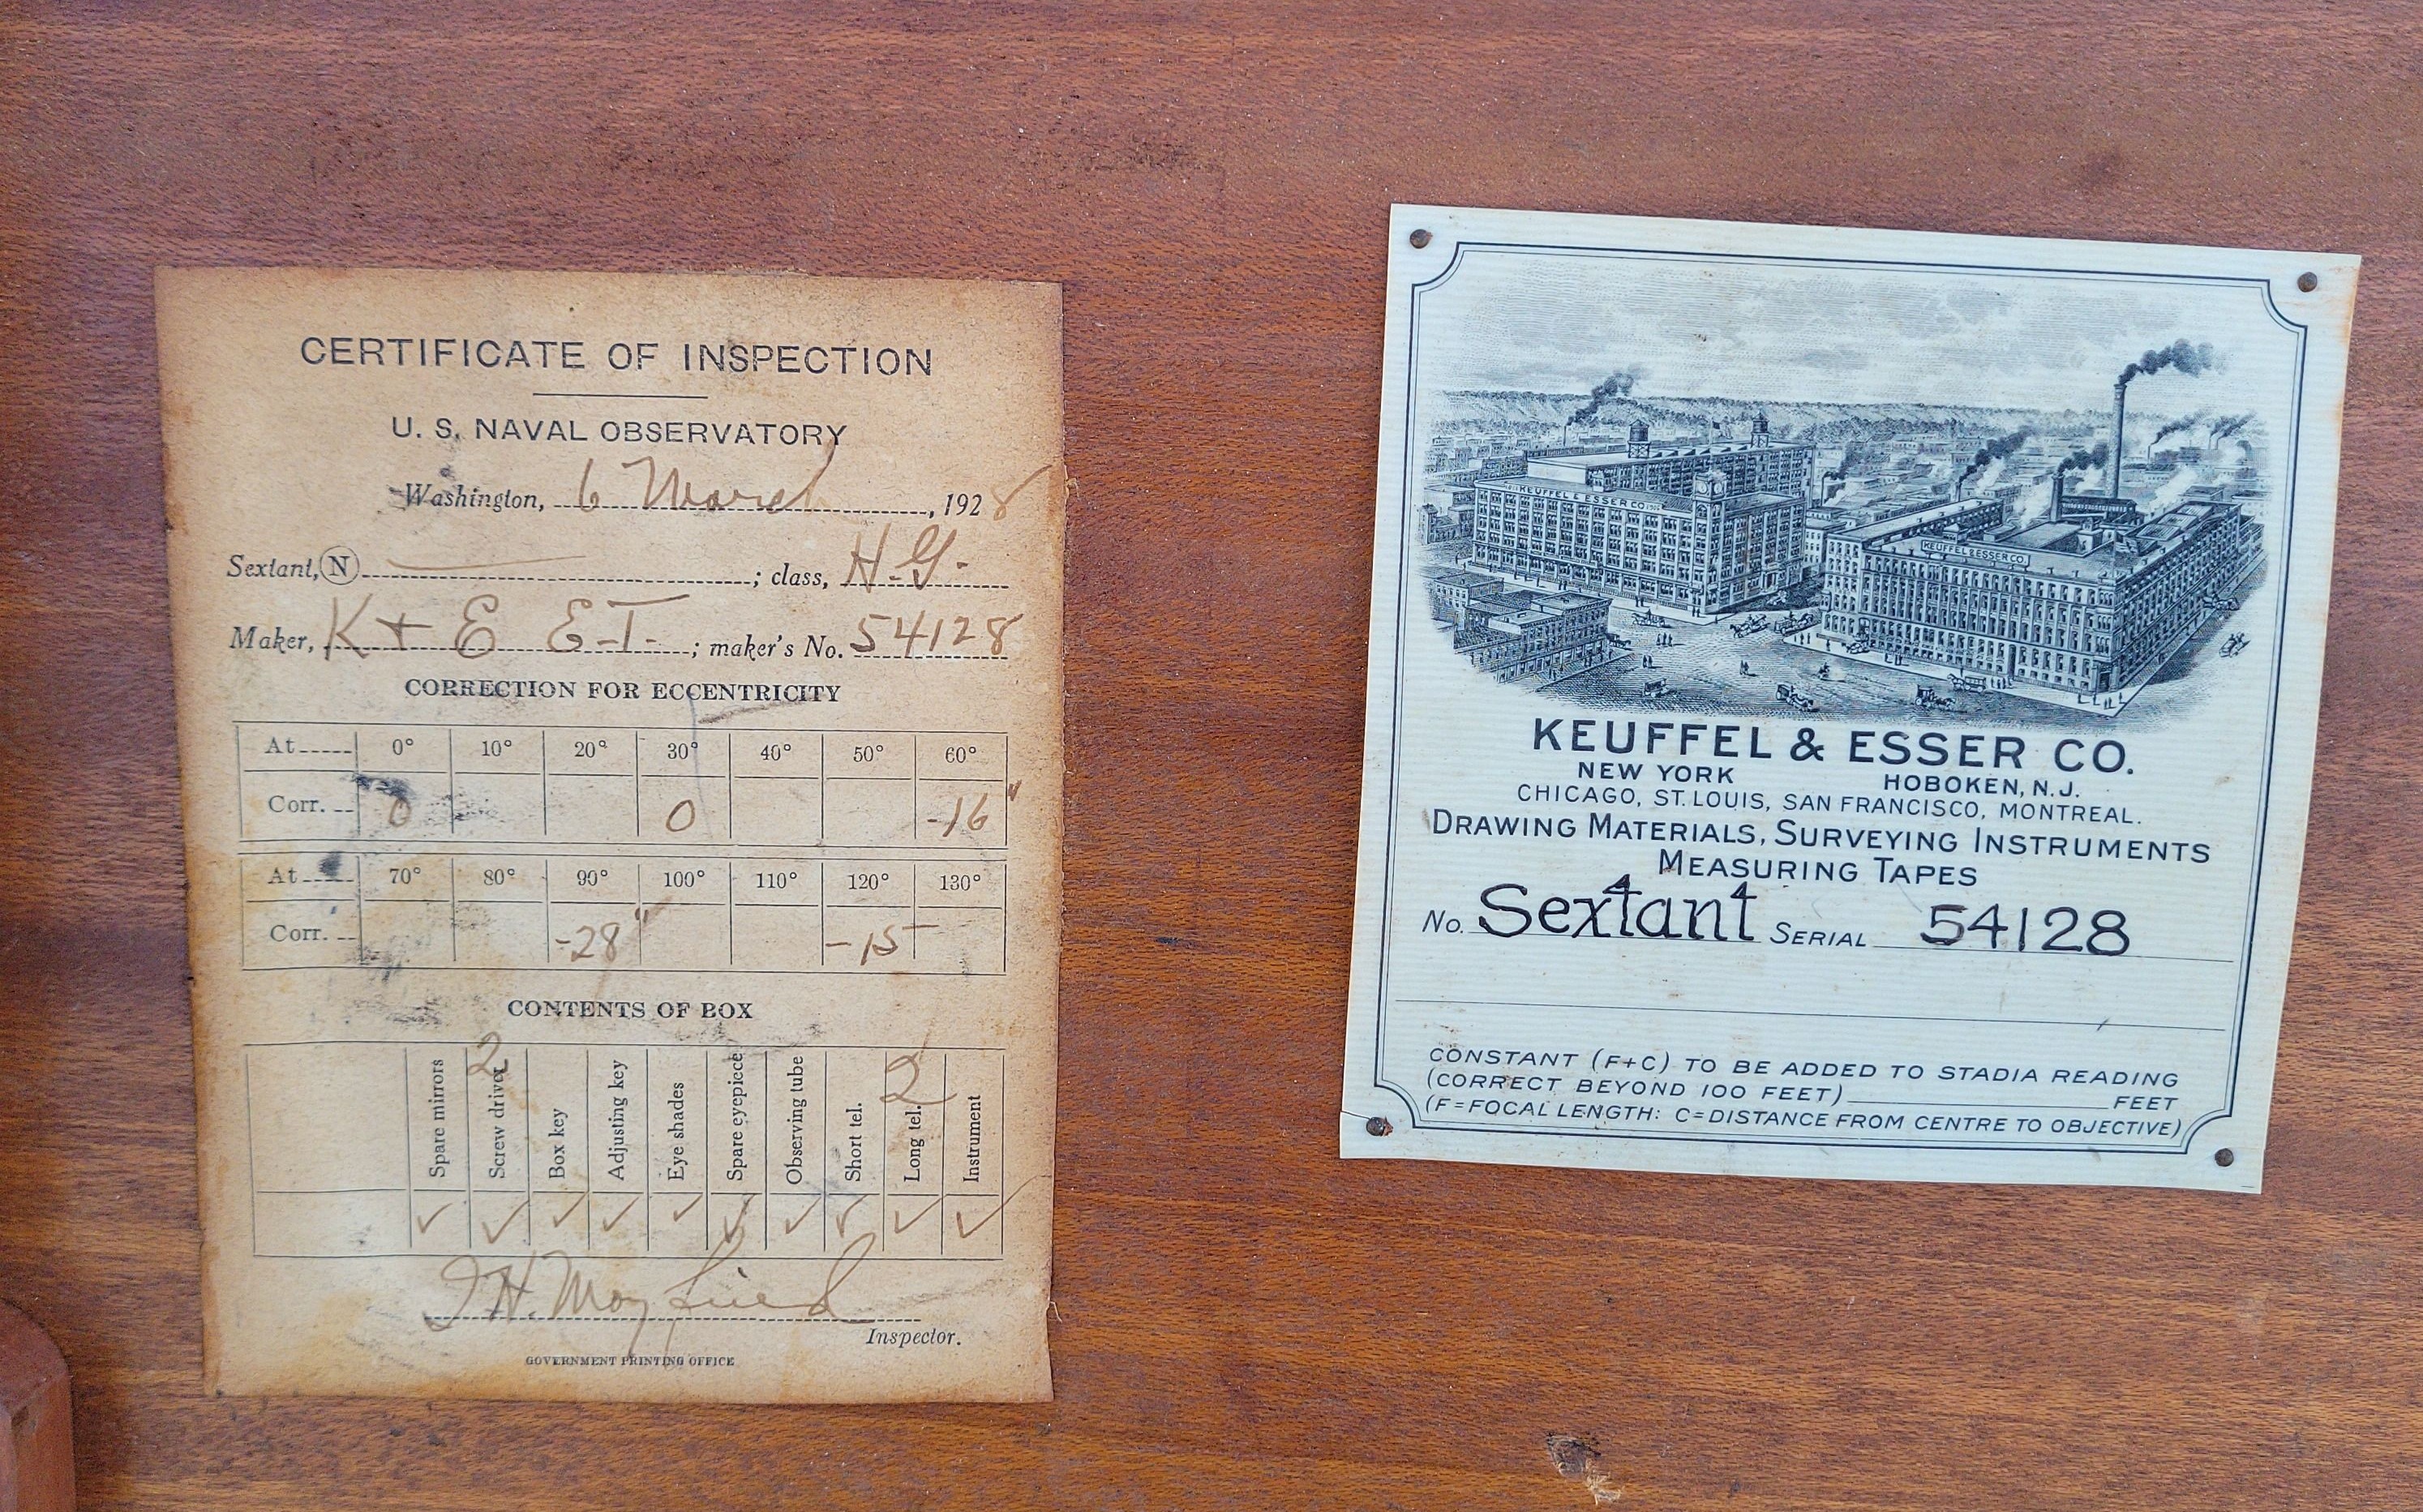 CERTIFICATE OF INSPECTION
U. S. NAVAL OBSERVATORY
Washington, 6 March, 1928
Sextant, N ; class, H.G.
Maker, K + E E.T. ; maker's No. 54128
CORRECTION FOR ECCENTRICITY
At 0° 10° 20° 30° 40° 50° 60°
Corr. 0 0 -16"
At 70° 80° 90° 100° 110° 120° 130°
Corr. -28" -15
CONTENTS OF BOX
2 2
Spare mirrors
Screw driver
Box key
Adjusting key
Eye shades
Spare eyepiece
Observing tube
Short tel.
Long tel.
Instrument
✓ ✓ ✓ ✓ ✓ ✓ ✓ ✓ ✓ ✓
H. Mayfield
Inspector.
GOVERNMENT PRINTING OFFICE
KEUFFEL & ESSER CO.
KEUFFEL & ESSER CO.
KEUFFEL & ESSER CO.
NEW YORK HOBOKEN, N.J.
CHICAGO, ST. LOUIS, SAN FRANCISCO, MONTREAL.
DRAWING MATERIALS, SURVEYING INSTRUMENTS
MEASURING TAPES
No. Sextant SERIAL 54128
CONSTANT (F+C) TO BE ADDED TO STADIA READING
(CORRECT BEYOND 100 FEET) FEET
(F=FOCAL LENGTH: C=DISTANCE FROM CENTRE TO OBJECTIVE)